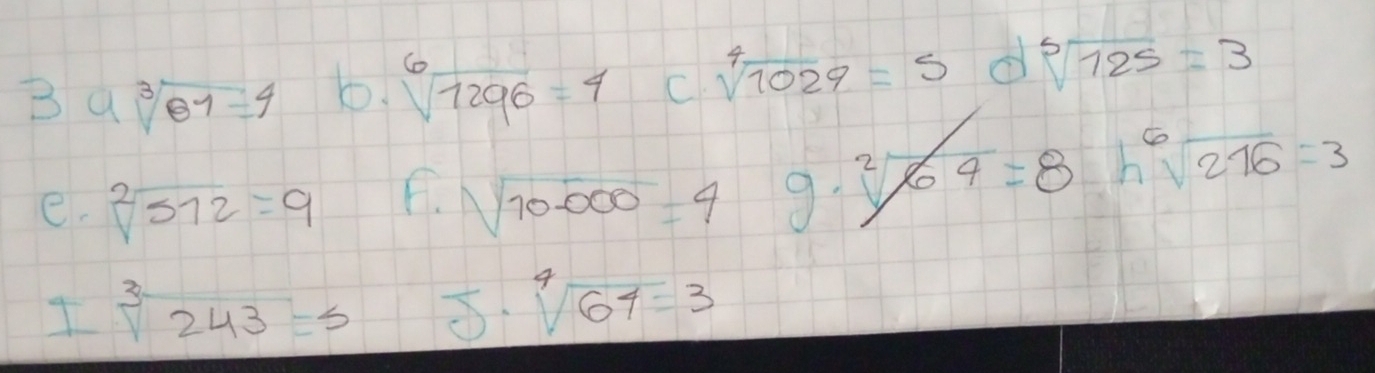 3 a ³√81 = 4 b. ⁶√1296 = 4 c. ⁴√1024 = 5 d ⁵√125 = 3
e. ²√512 = 9 f. √10.000 = 4 g. ²√64 = 8 h ⁶√216 = 3
I ³√243 = 5 J. ⁴√64 = 3